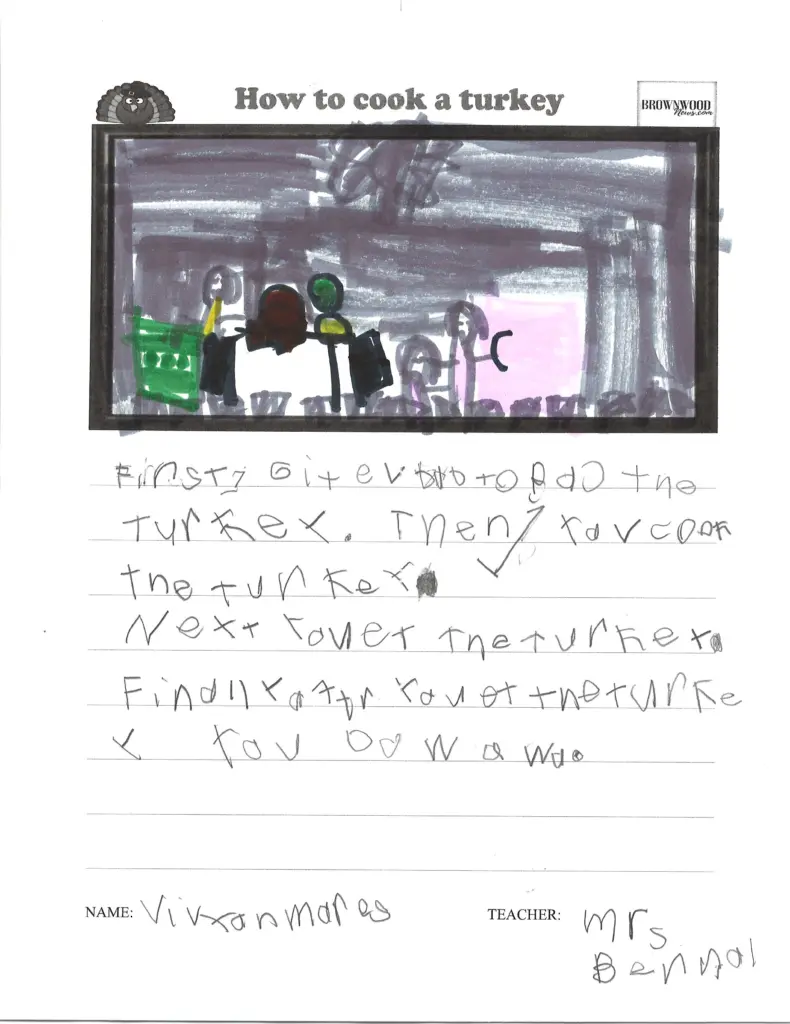 How to cook a turkey
BROWNWOOD
News.com
First, Git to the
turkey. Then, You cook
the turkey.
Next You et the turkey.
Finally You et the turke
y You
NAME: Vivyan mares
TEACHER: mrs